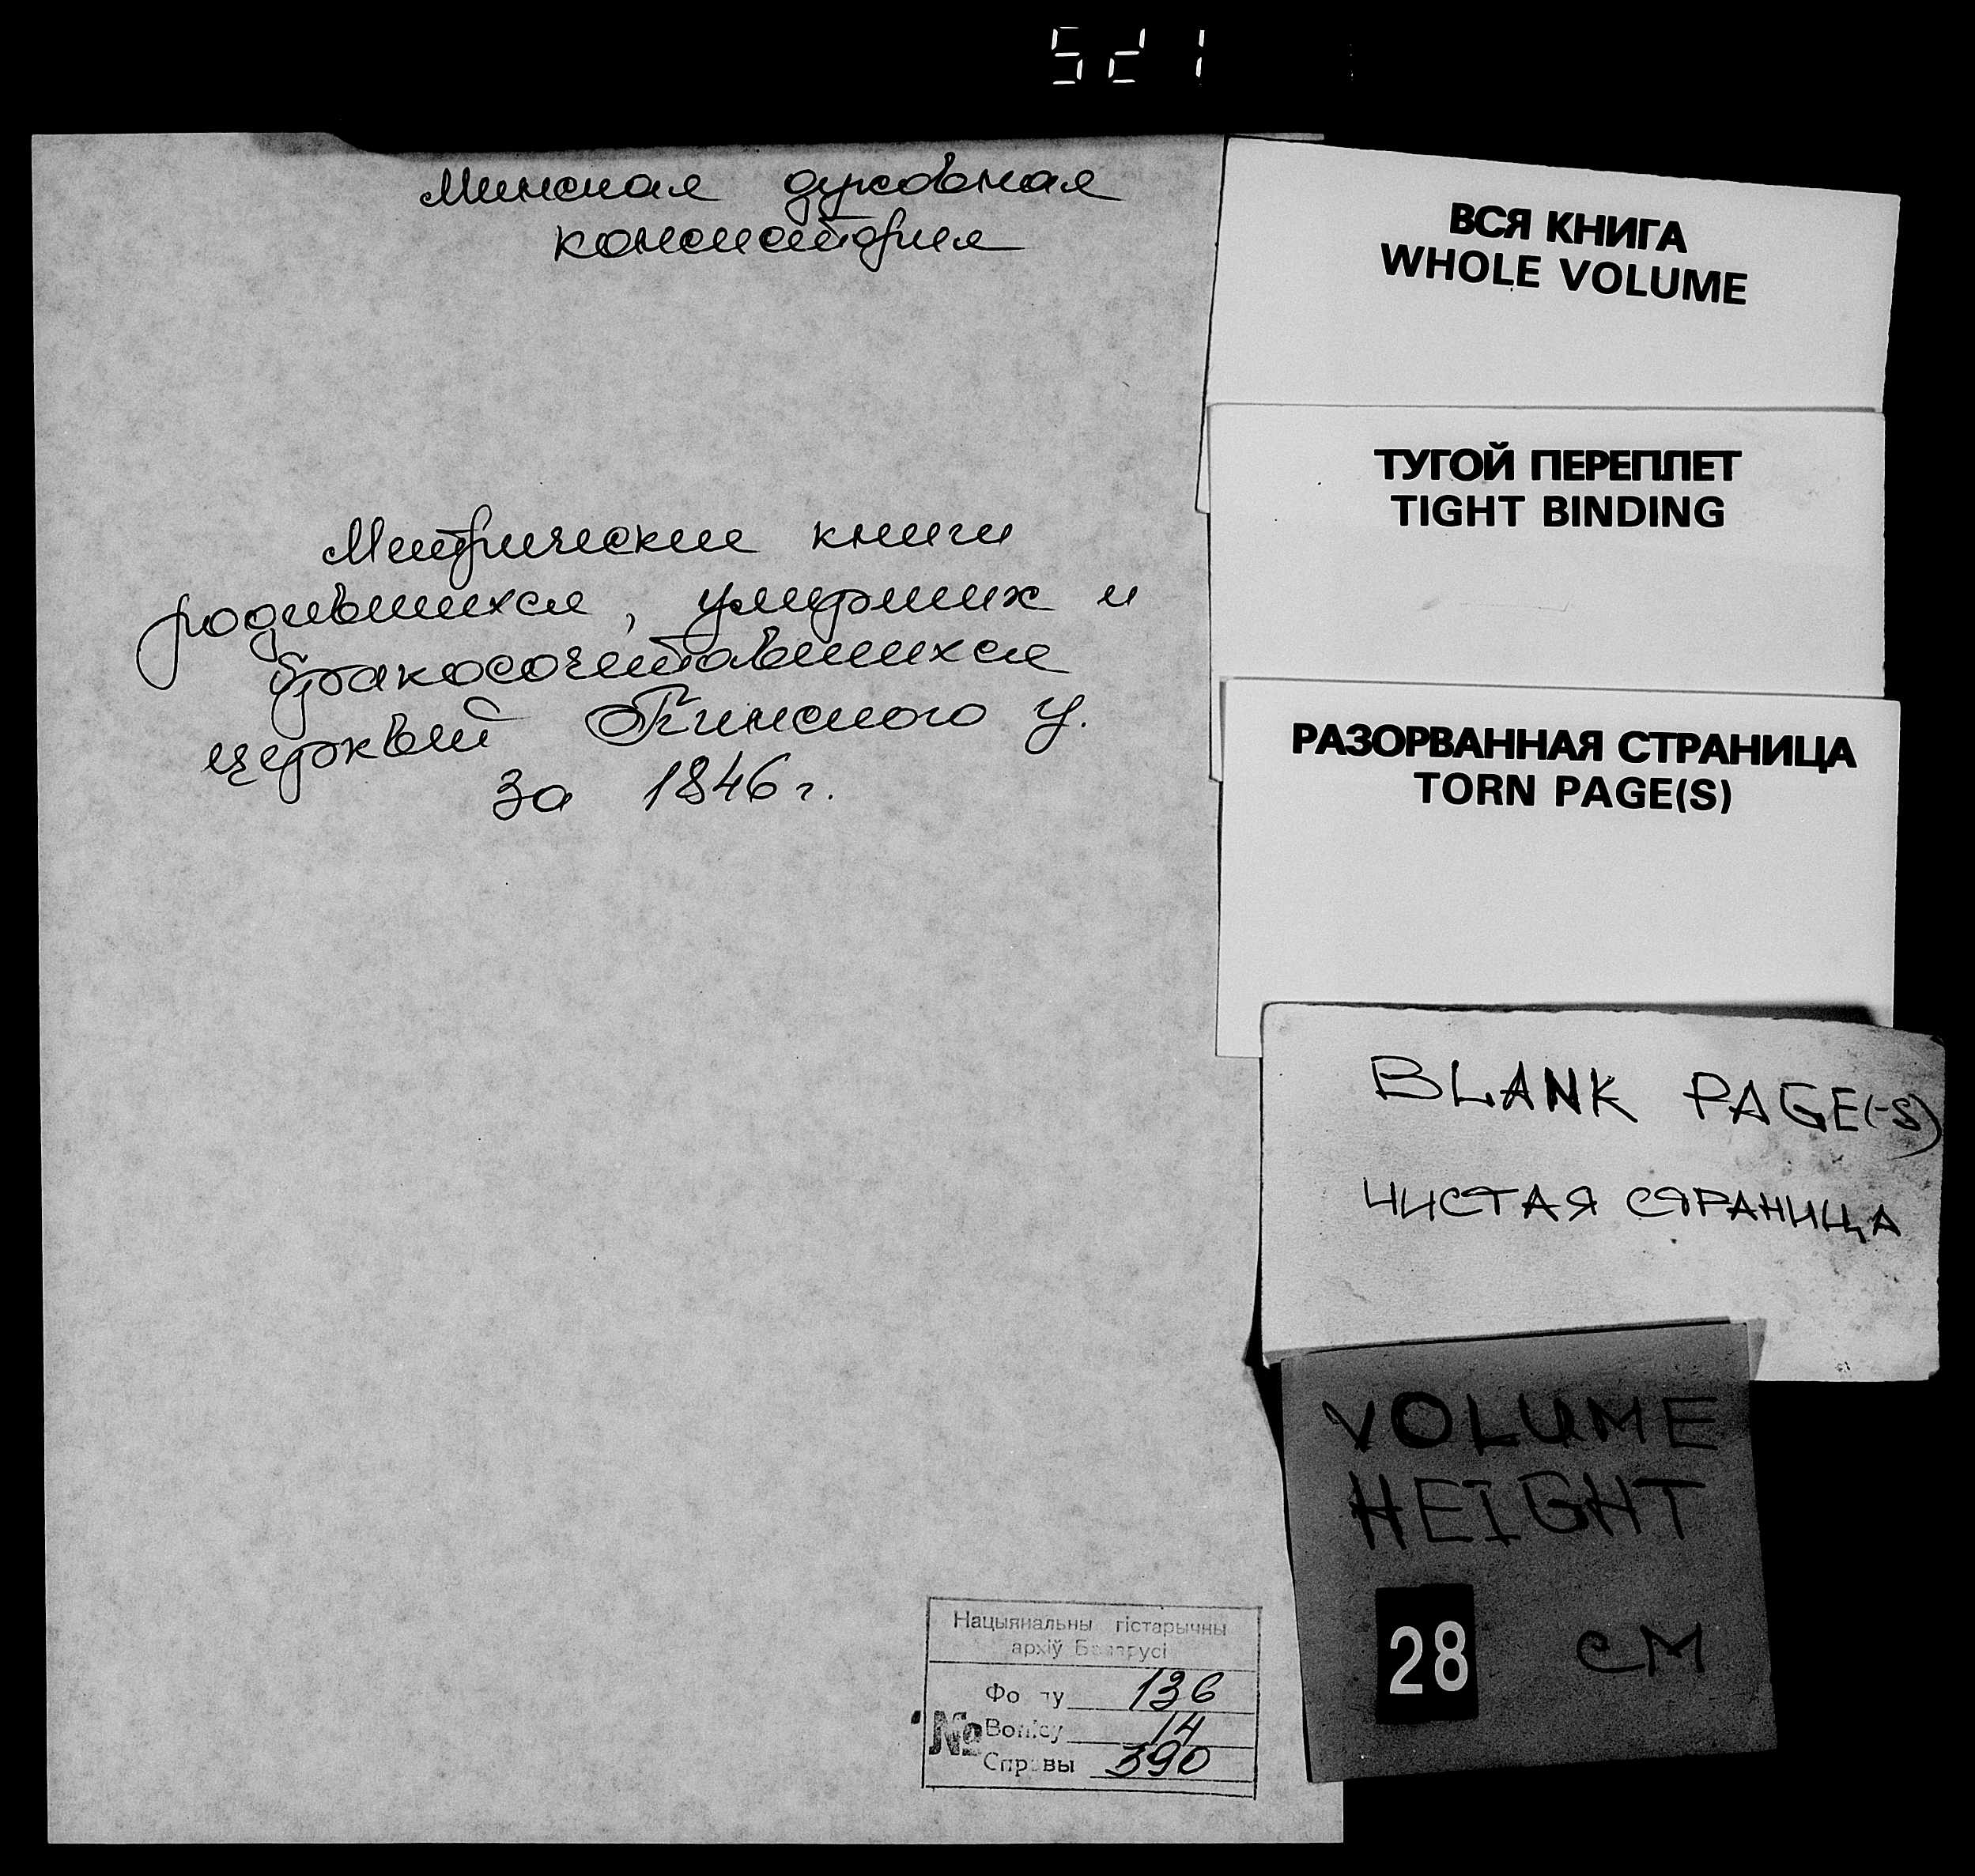 521
Минская духовная
консистория
Метрические книги
родившихся, умерших и
бракосочетавшихся
церквей Пинского у.
за 1846 г.
Нацыянальны гістарычны
архіў Беларусі
Фонду 136
№ Вопісу 14
Справы 390
ВСЯ КНИГА
WHOLE VOLUME
ТУГОЙ ПЕРЕПЛЕТ
TIGHT BINDING
РАЗОРВАННАЯ СТРАНИЦА
TORN PAGE(S)
BLANK PAGE(-S)
ЧИСТАЯ СТРАНИЦА
VOLUME
HEIGHT
28 см